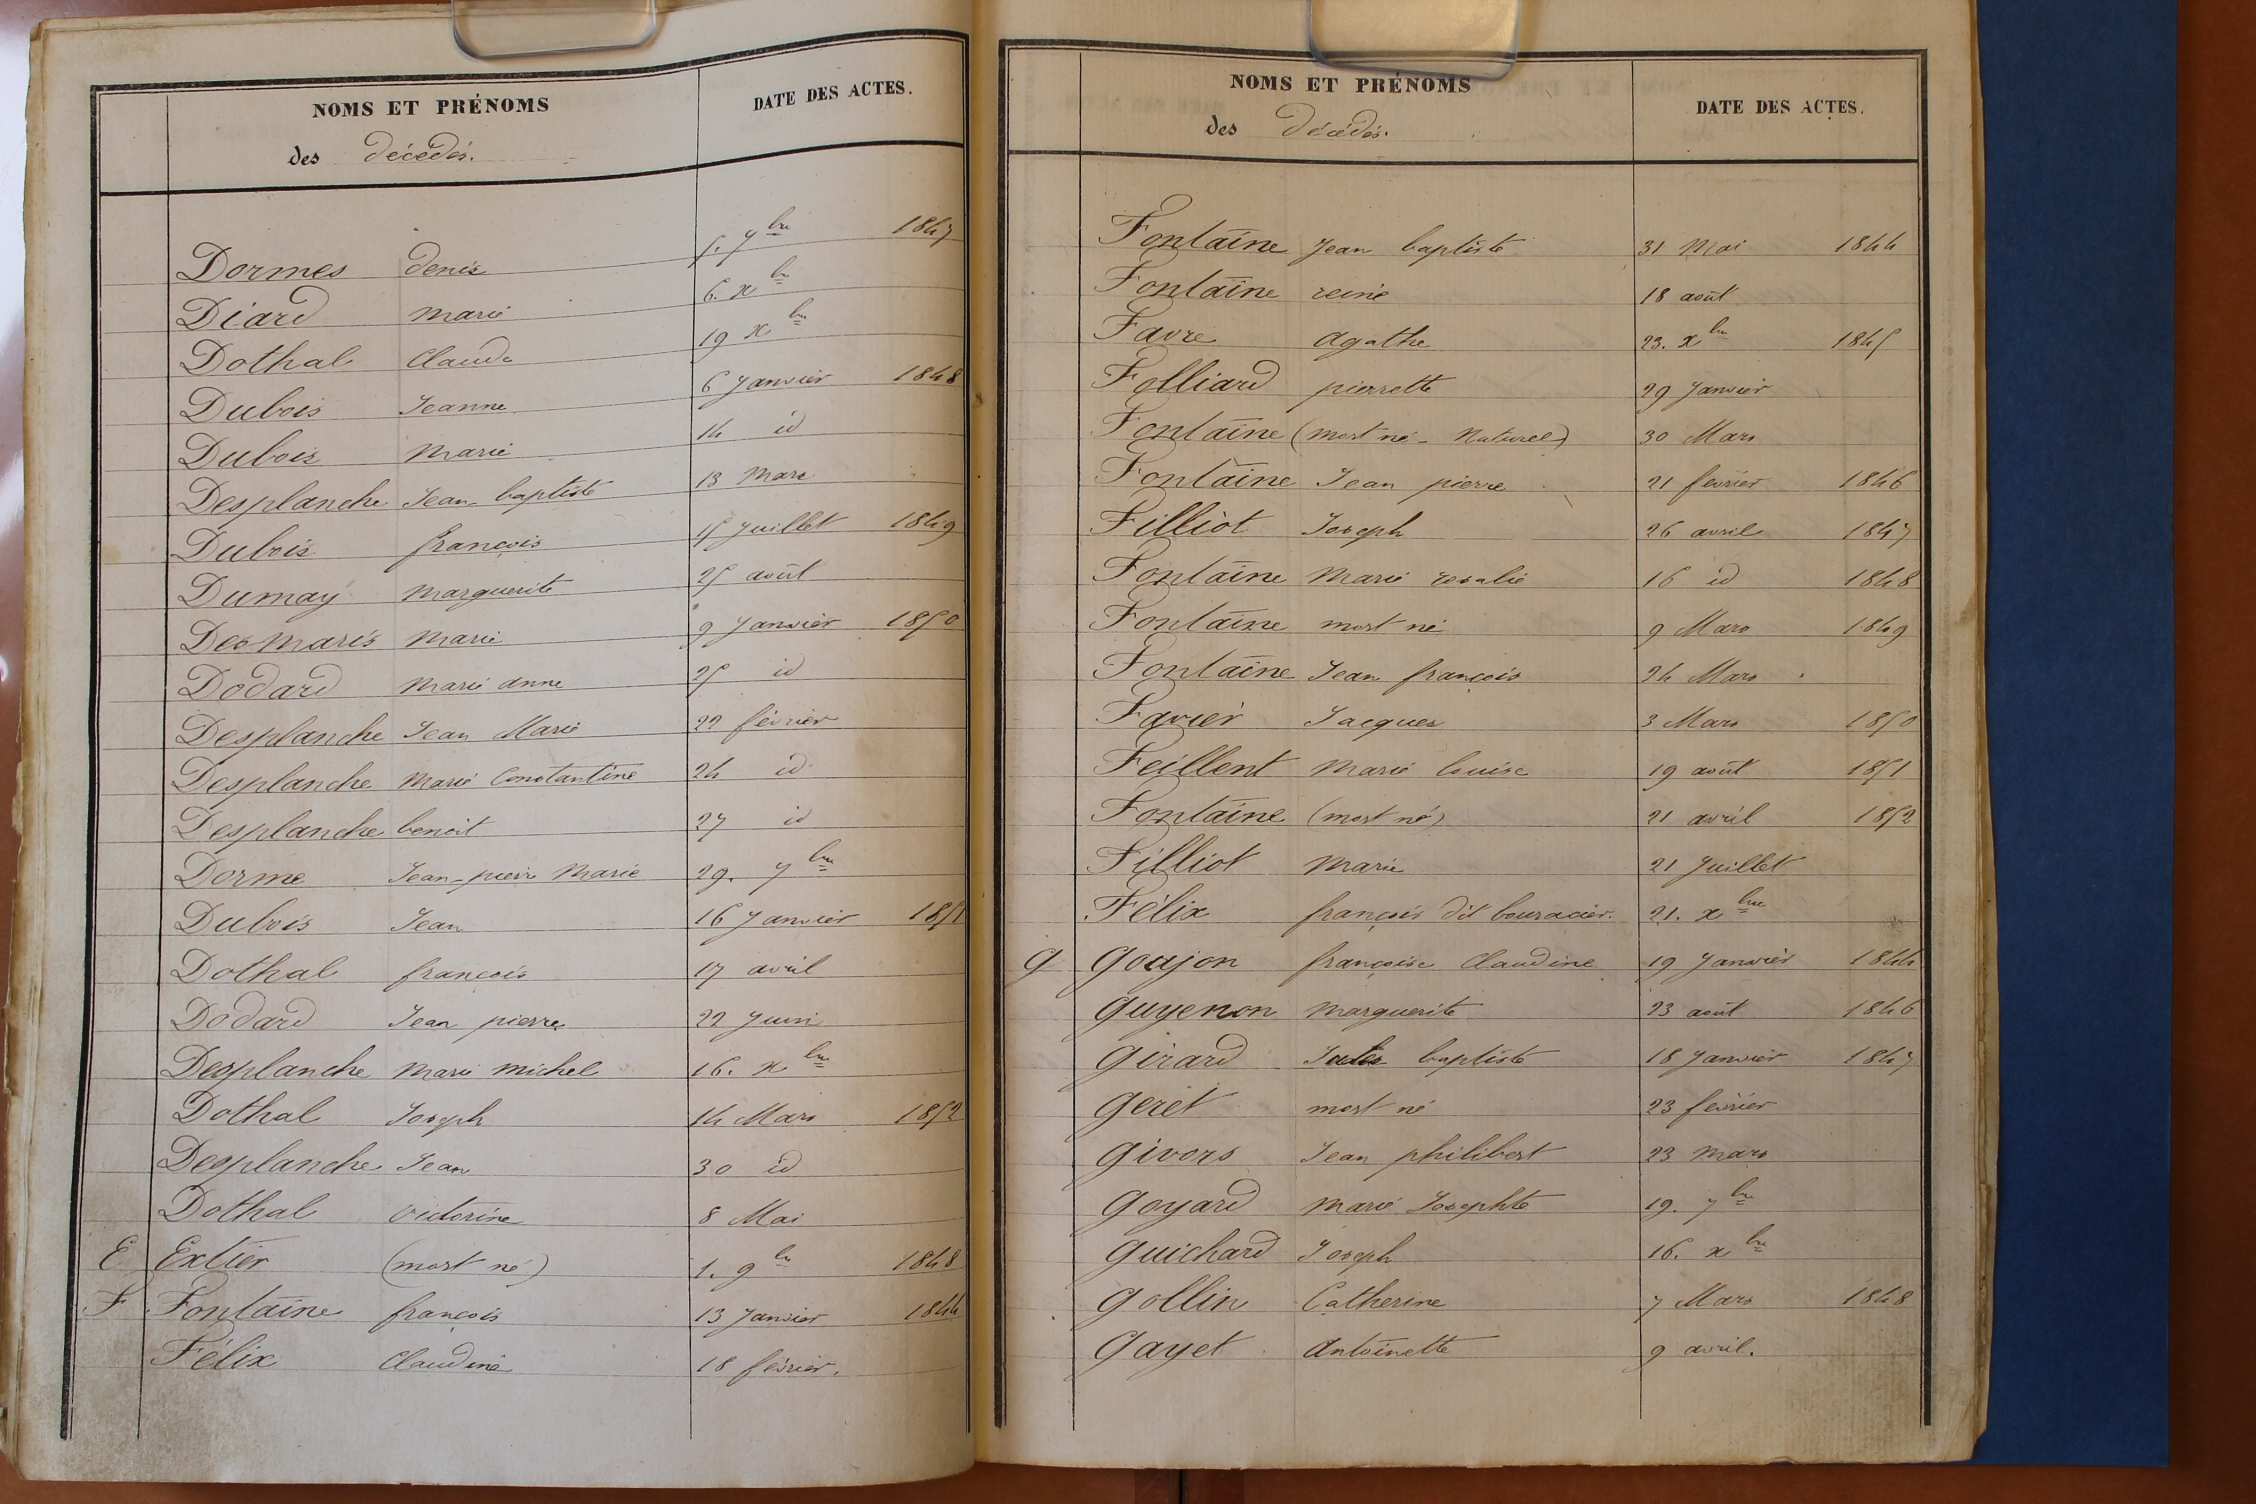 NOMS ET PRÉNOMS
DATE DES ACTES.
des décédés.
Dormes denis 5. 7bre 1847
Diard marie 6. xbre
Dothal Claude 19 xbre
Dubois Jeanne 6 Janvier 1848
Dubois Marie 14 id
Desplanche Jean-baptiste 13 Mars
Dubois françois 4 Juillet 1849
Dumay Marguerite 25 août
Desmaris Marie 9 Janvier 1850
Dodard Marie anne 25 id
Desplanche Jean Marie 22 février
Desplanche Marie Constantine 24 id
Desplanche benoit 27 id
Dorme Jean-pierre Marie 29. 7bre
Dubois Jean 16 Janvier 1851
Dothal françois 17 avril
Dodard Jean pierre 22 Juin
Desplanche Marie Michel 16. xbre
Dothal Joseph 14 Mars 1852
Desplanche Jean 30 id
Dothal victorine 8 Mai
E Extier (mort né) 1. 9bre 1848
F Fontaine françois 13 Janvier 1844
Félix Claudine 18 février.
NOMS ET PRÉNOMS
DATE DES ACTES.
des décédés.
Fontaine Jean baptiste 31 Mai 1844
Fontaine reine 18 août
Favre agathe 23. xbre 1845
Folliard pierrette 29 Janvier
Fontaine (mort né - Naturel) 30 Mars
Fontaine Jean pierre 21 février 1846
Filliot Joseph 26 avril 1847
Fontaine Marie rosalie 16 id 1848
Fontaine mort né 9 Mars 1849
Fontaine Jean françois 24 Mars
Favier Jacques 3 Mars 1850
Feillent Marie louise 19 août 1851
Fontaine (mort né) 21 avril 1852
Filliot Marie 21 Juillet
Félix françois dit bouracier. 21. xbre
G Goujon françoise Claudine 19 Janvier 1844
Guyenon Marguerite 23 août 1846
Girard Jules baptiste 18 Janvier 1847
Geret mort né 23 février
Givors Jean philibert 23 Mars
Goyard Marie Josephte 19. 7bre
Guichard Joseph 16. xbre
Gollin Catherine 7 Mars 1848
Gayet Antoinette 9 avril.